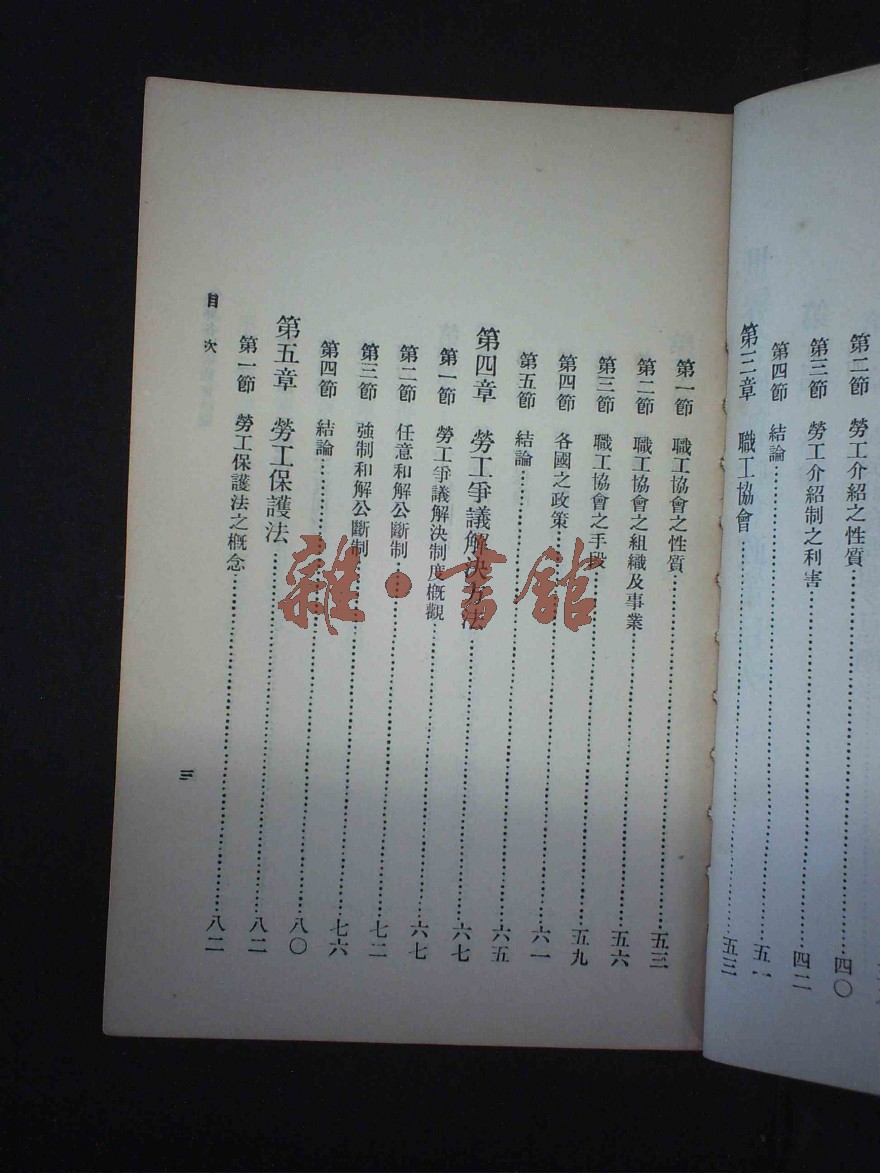 第二節　勞工介紹之性質……四〇
第三節　勞工介紹制之利害……四二
第四節　結論……五一
第三章　職工協會……五三
第一節　職工協會之性質……五三
第二節　職工協會之組織及事業……五六
第三節　職工協會之手段……五九
第四節　各國之政策……六一
第五節　結論……六五
第四章　勞工爭議解決方法……六七
第一節　勞工爭議解決制度概觀……六七
第二節　任意和解公斷制……七二
第三節　強制和解公斷制……七六
第四節　結論……八〇
第五章　勞工保護法……八二
第一節　勞工保護法之概念……八二
目次　三
雜·書館